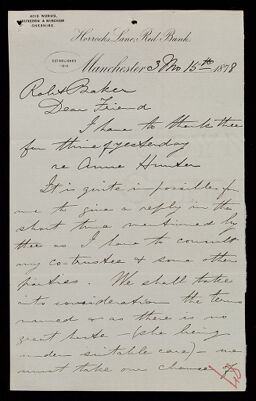 ACID WORKS,
RUNCORN & WIDNESS
CHESHIRE
Horrocks Lane, Red Bank,
ESTABLISHED
Manchester 3 Mo 15th 1878
Robt Baker
Dear Friend
I have to thank thee
for thine of yesterday
re Annie Hunter
It is quite impossible for
me to give a reply in the
short time mentioned by
thee as I have to consult
my co-trustee & some other
parties. We shall take
into consideration the terms
named & as there is no
great hurry – (she being
under suitable care) – we
must take our chance of